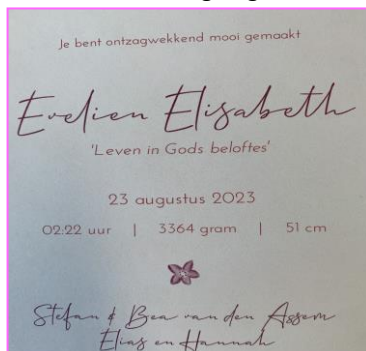 Je bent ontzagwekkend mooi gemaakt
Evelien Elisabeth
'Leven in Gods beloftes'
23 augustus 2023
02:22 uur | 3364 gram | 51 cm
Stefan & Bea van den Assem
Elias en Hannah